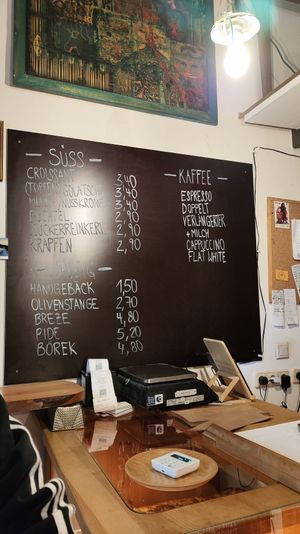 — SÜSS —
CROISSANT 3,40
(TOPFEN)GOLATSCHE 3,40
NUSSKRONE 3,40
2,90
ZUCKERREINKERL 2,90
KRAPFEN 2,90
HANDGEBÄCK 1,50
OLIVENSTANGE 2,70
BREZE 4,80
PIDE 5,20
BÖREK 4,80
— KAFFEE —
ESPRESSO
DOPPELT
VERLÄNGERTER
+ MILCH
CAPPUCCINO
FLAT WHITE